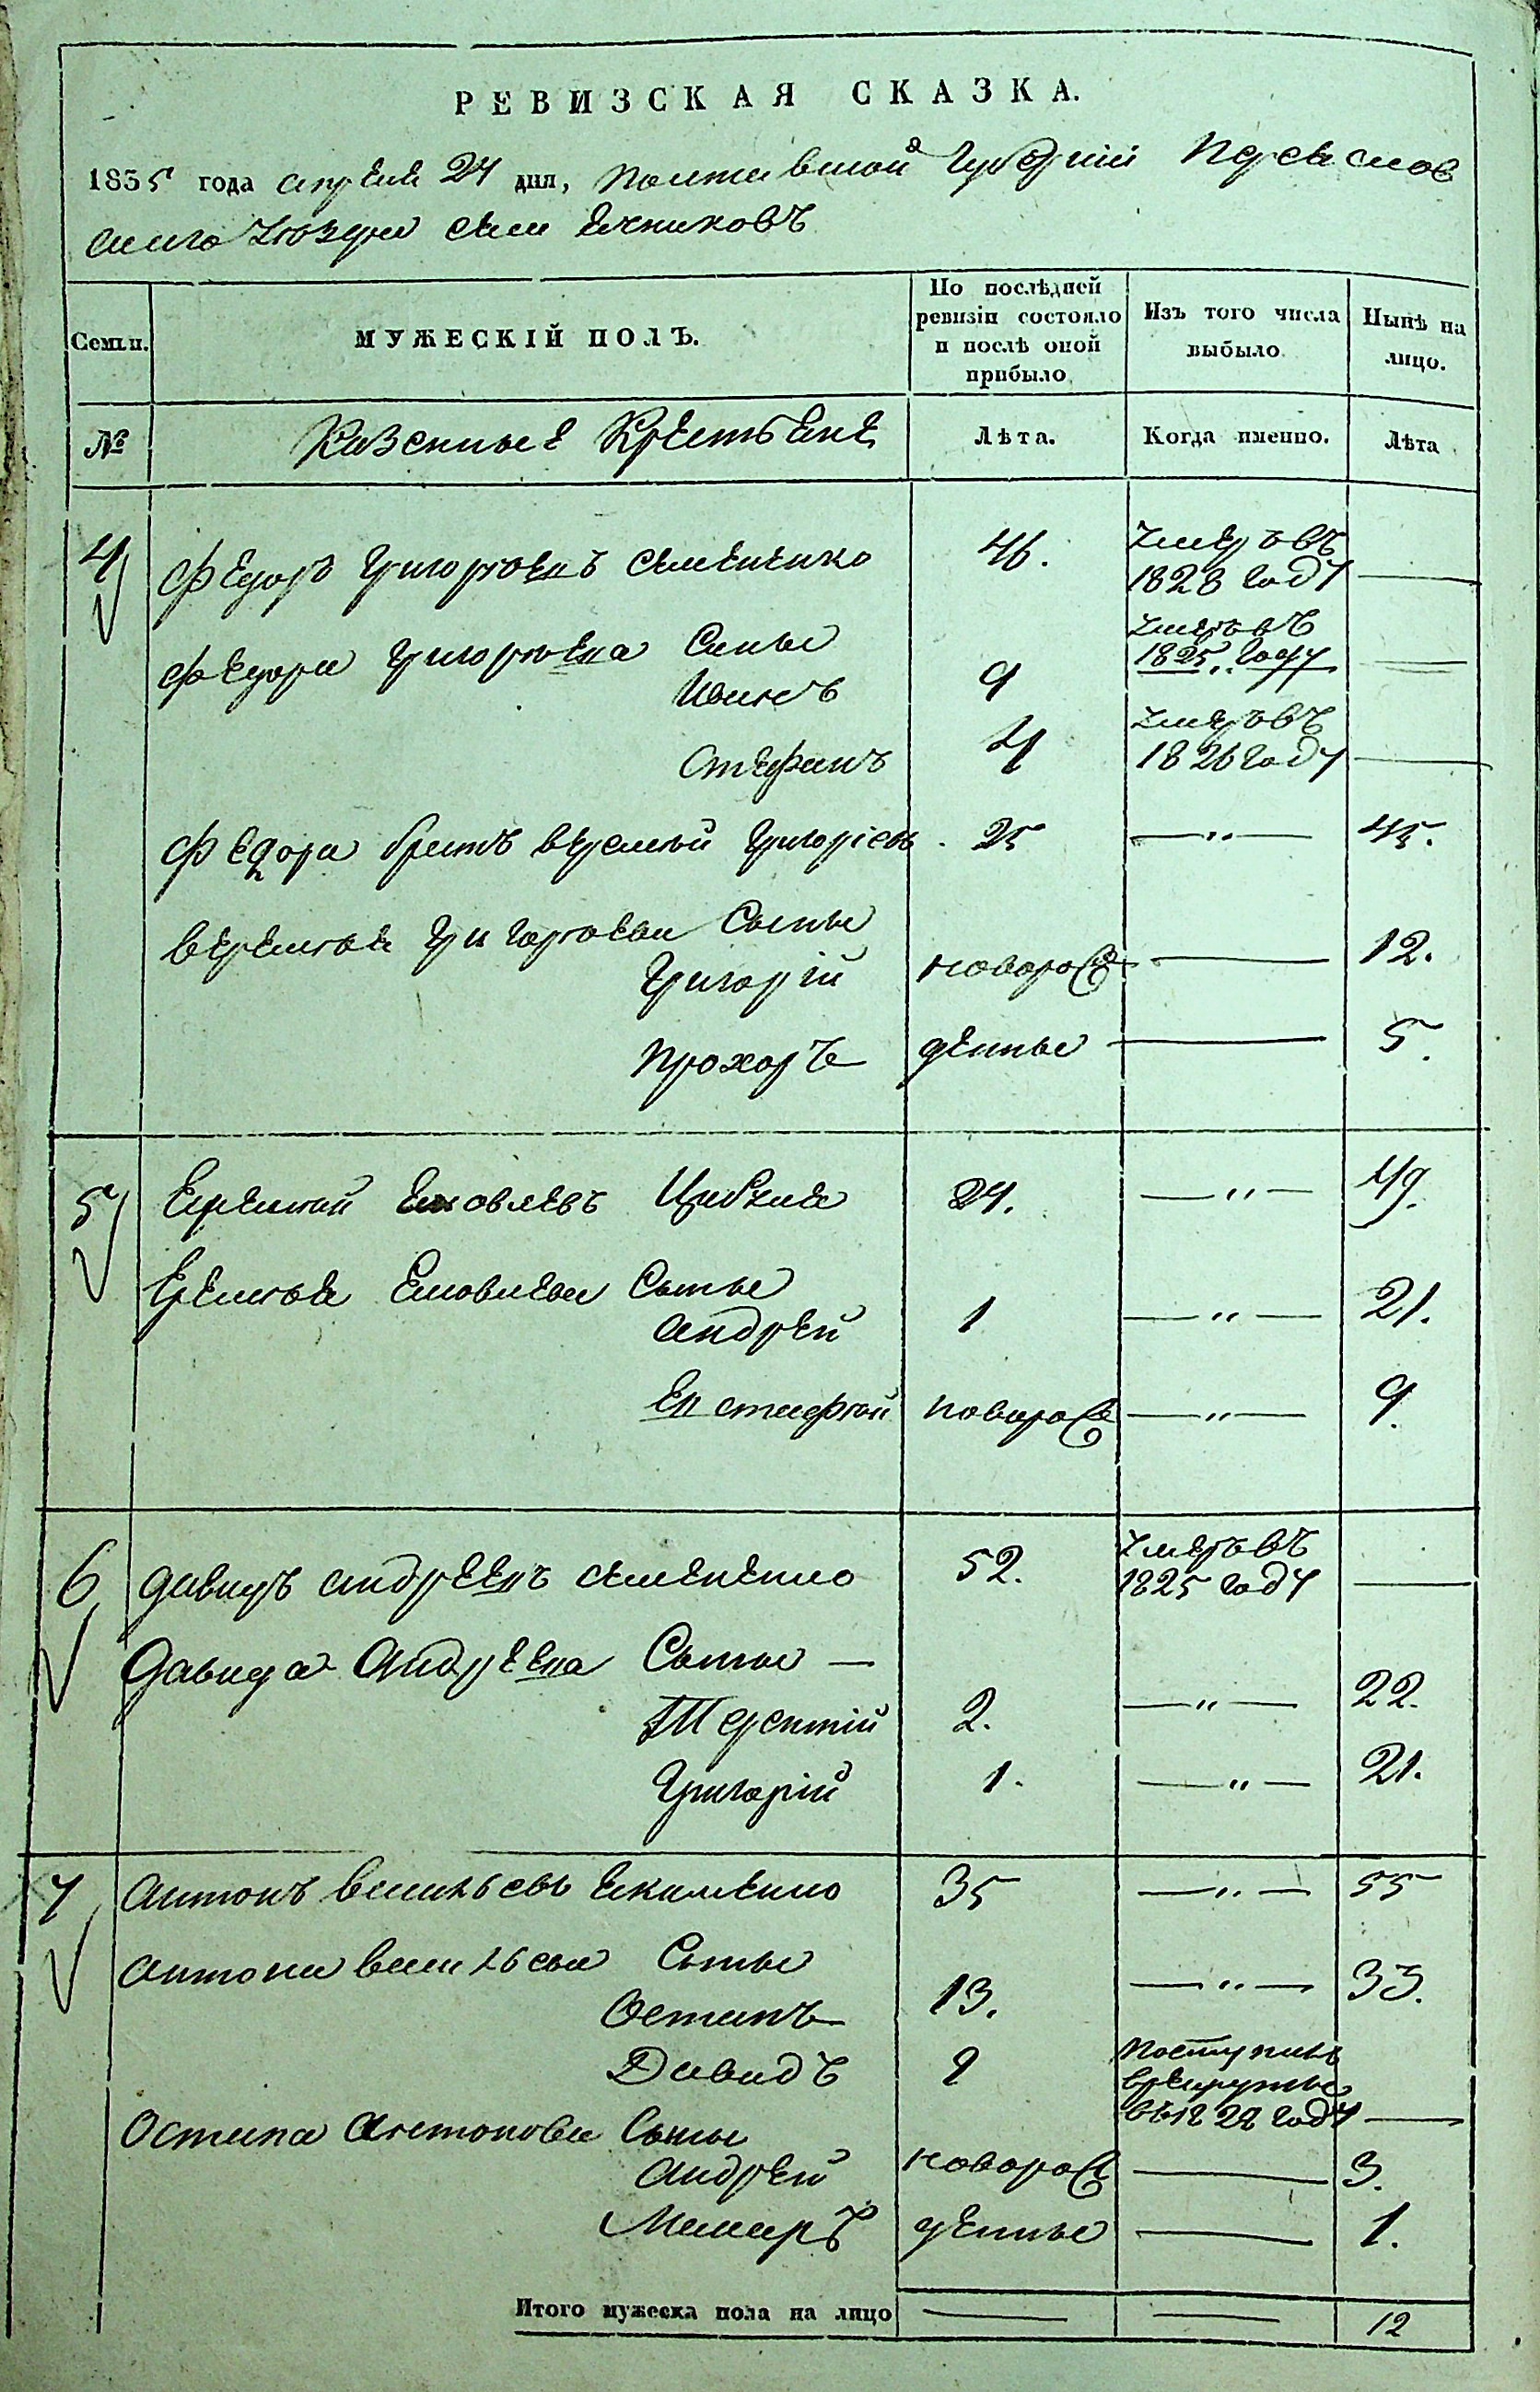 РЕВИЗСКАЯ СКАЗКА.
1835 года апреля 24 дня, Полтавской Губернии Переяслов
скаго уюзда села Ячниковъ
Семьи. МУЖЕСКІЙ ПОЛЪ. По послѣдней ревизіи состояло и послѣ оной прибыло Изъ того числа выбыло Нынѣ на лицо.
№ Казенные Крестьяне Лѣта. Когда именно. Лѣта
4 Федоръ Григорюевъ Семененко 46. Умеръ въ 1828 Году —
Федора Григорюева Сыны
Иванъ 9 Умеръ въ 1825 Году —
Стефанъ 4 Умеръ въ 1826 Году —
Федора братъ Веремюй Григорієвъ 25 —„— 45.
Веремюя Григорюева Сыны
Григорій новоро — 12.
Прохоръ жденные — 5.
5 Еремюй Яковлевъ 24. —„— 49.
Еремюя Яковлева Сыны
Андрей 1 —„— 21.
Евстафюй новорож —„— 9.
6 Давидъ Андреевъ Семененко 52. Умеръ въ 1825 Году —
Давида Андреева Сыны —
Терентій 2. —„— 22.
Григорій 1. —„— 21.
7 Антонъ Васильевъ Екименко 35 —„— 55
Антона Васильева Сыны
Остапъ 13. —„— 33.
Давидъ 9 поступилъ врекруты въ 1828 Году —
Остапа Антонова Сыны
Андрей новорож — 3.
Макаръ денные — 1.
Итого мужеска пола на лицо — — 12